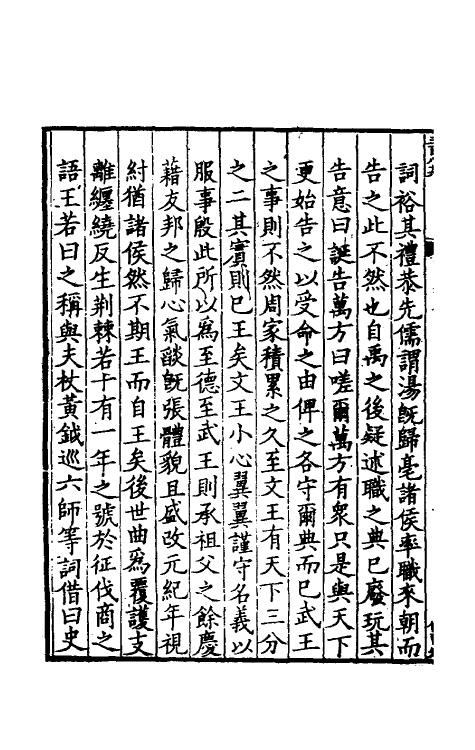 詞裕其禮恭先儒謂湯旣歸亳諸侯率職來朝而
告之此不然也自禹之後疑述職之典已廢玩其
告意曰誕告萬方曰嗟爾萬方有衆只是與天下
更始告之以受命之由俾之各守爾典而已武王
之事則不然周家積累之久至文王有天下三分
之二其實則已王矣文王小心翼翼謹守名義以
服事殷此所以爲至德至武王則承祖父之餘慶
藉友邦之歸心氣燄旣張體貌且盛改元紀年視
紂猶諸侯然不期王而自王矣後世曲爲覆護支
離纏繞反生荆棘若十有一年之號於征伐商之
語王若曰之稱與夫杖黃鉞巡六師等詞借曰史